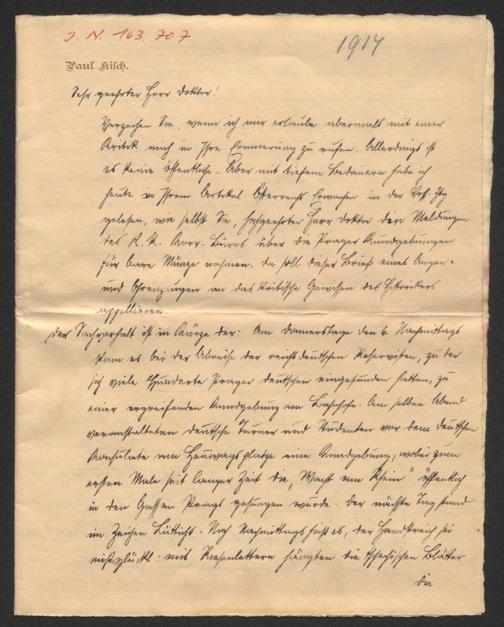 J. N. 163.707
1914
Paul Kisch.
Sehr geehrter Herr Doktor!
Verzeihen Sie, wenn ich mir erlaube abermals mit einer
Kritik mich in Ihre Erinnerung zu rufen. Allerdings ist
es keine öffentliche. Aber mit tiefem Bedauern habe ich
heute in Ihrem Artikel Österreichs Erwachen in der Voss. Ztg
gelesen, wie selbst Sie, hochgeehrter Herr Doktor den Meldungen
des K. K. Korr. Büros über die Prager Kundgebungen
für bare Münze nehmen. Da soll dieser Brief eines Augen-
und Ohrenzeugen an das kritische Gewissen des Historikers
appellieren.
Der Sachverhalt ist in Kürze der: Am Donnerstage den 6. Nachmittags
kam es bei der Abreise der reichsdeutschen Reservisten, zu der
sich viele Hunderte Prager Deutschen eingefunden hatten, zu
einer ergreifenden Kundgebung am Bahnhofe. Am selben Abend
veranstalteten deutsche Turner und Studenten vor dem deutschen
Konsulate am Heuwagsplatze eine Kundgebung, wobei zum
ersten Male seit langer Zeit die "Wacht am Rhein" öffentlich
in den Gassen Prags gesungen wurde. Der nächste Tag stand
im Zeichen Lüttichs. Noch Nachmittags hieß es, der Handstreich sei
mißglückt. mit Riesenlettern hängten die tschechischen Blätter
die